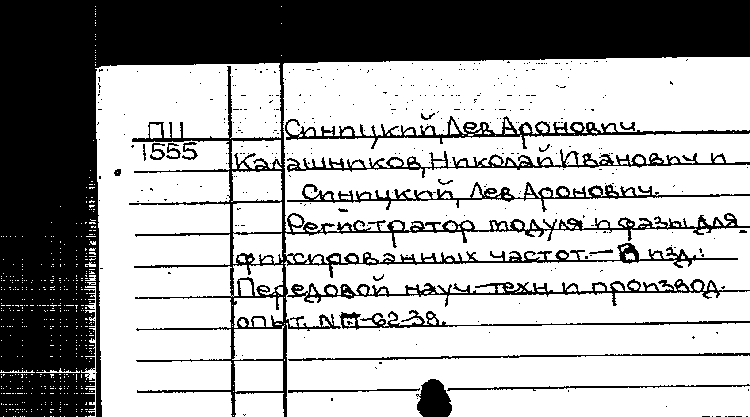 П11
1555
Синицкий, Лев Аронович.
Калашников, Николай Иванович и
Синицкий, Лев Аронович.
Регистратор модуля и фазы для
фиксированных частот.— В изд.:
Передовой науч.-техн. и производ.
опыт. №П-62-38.